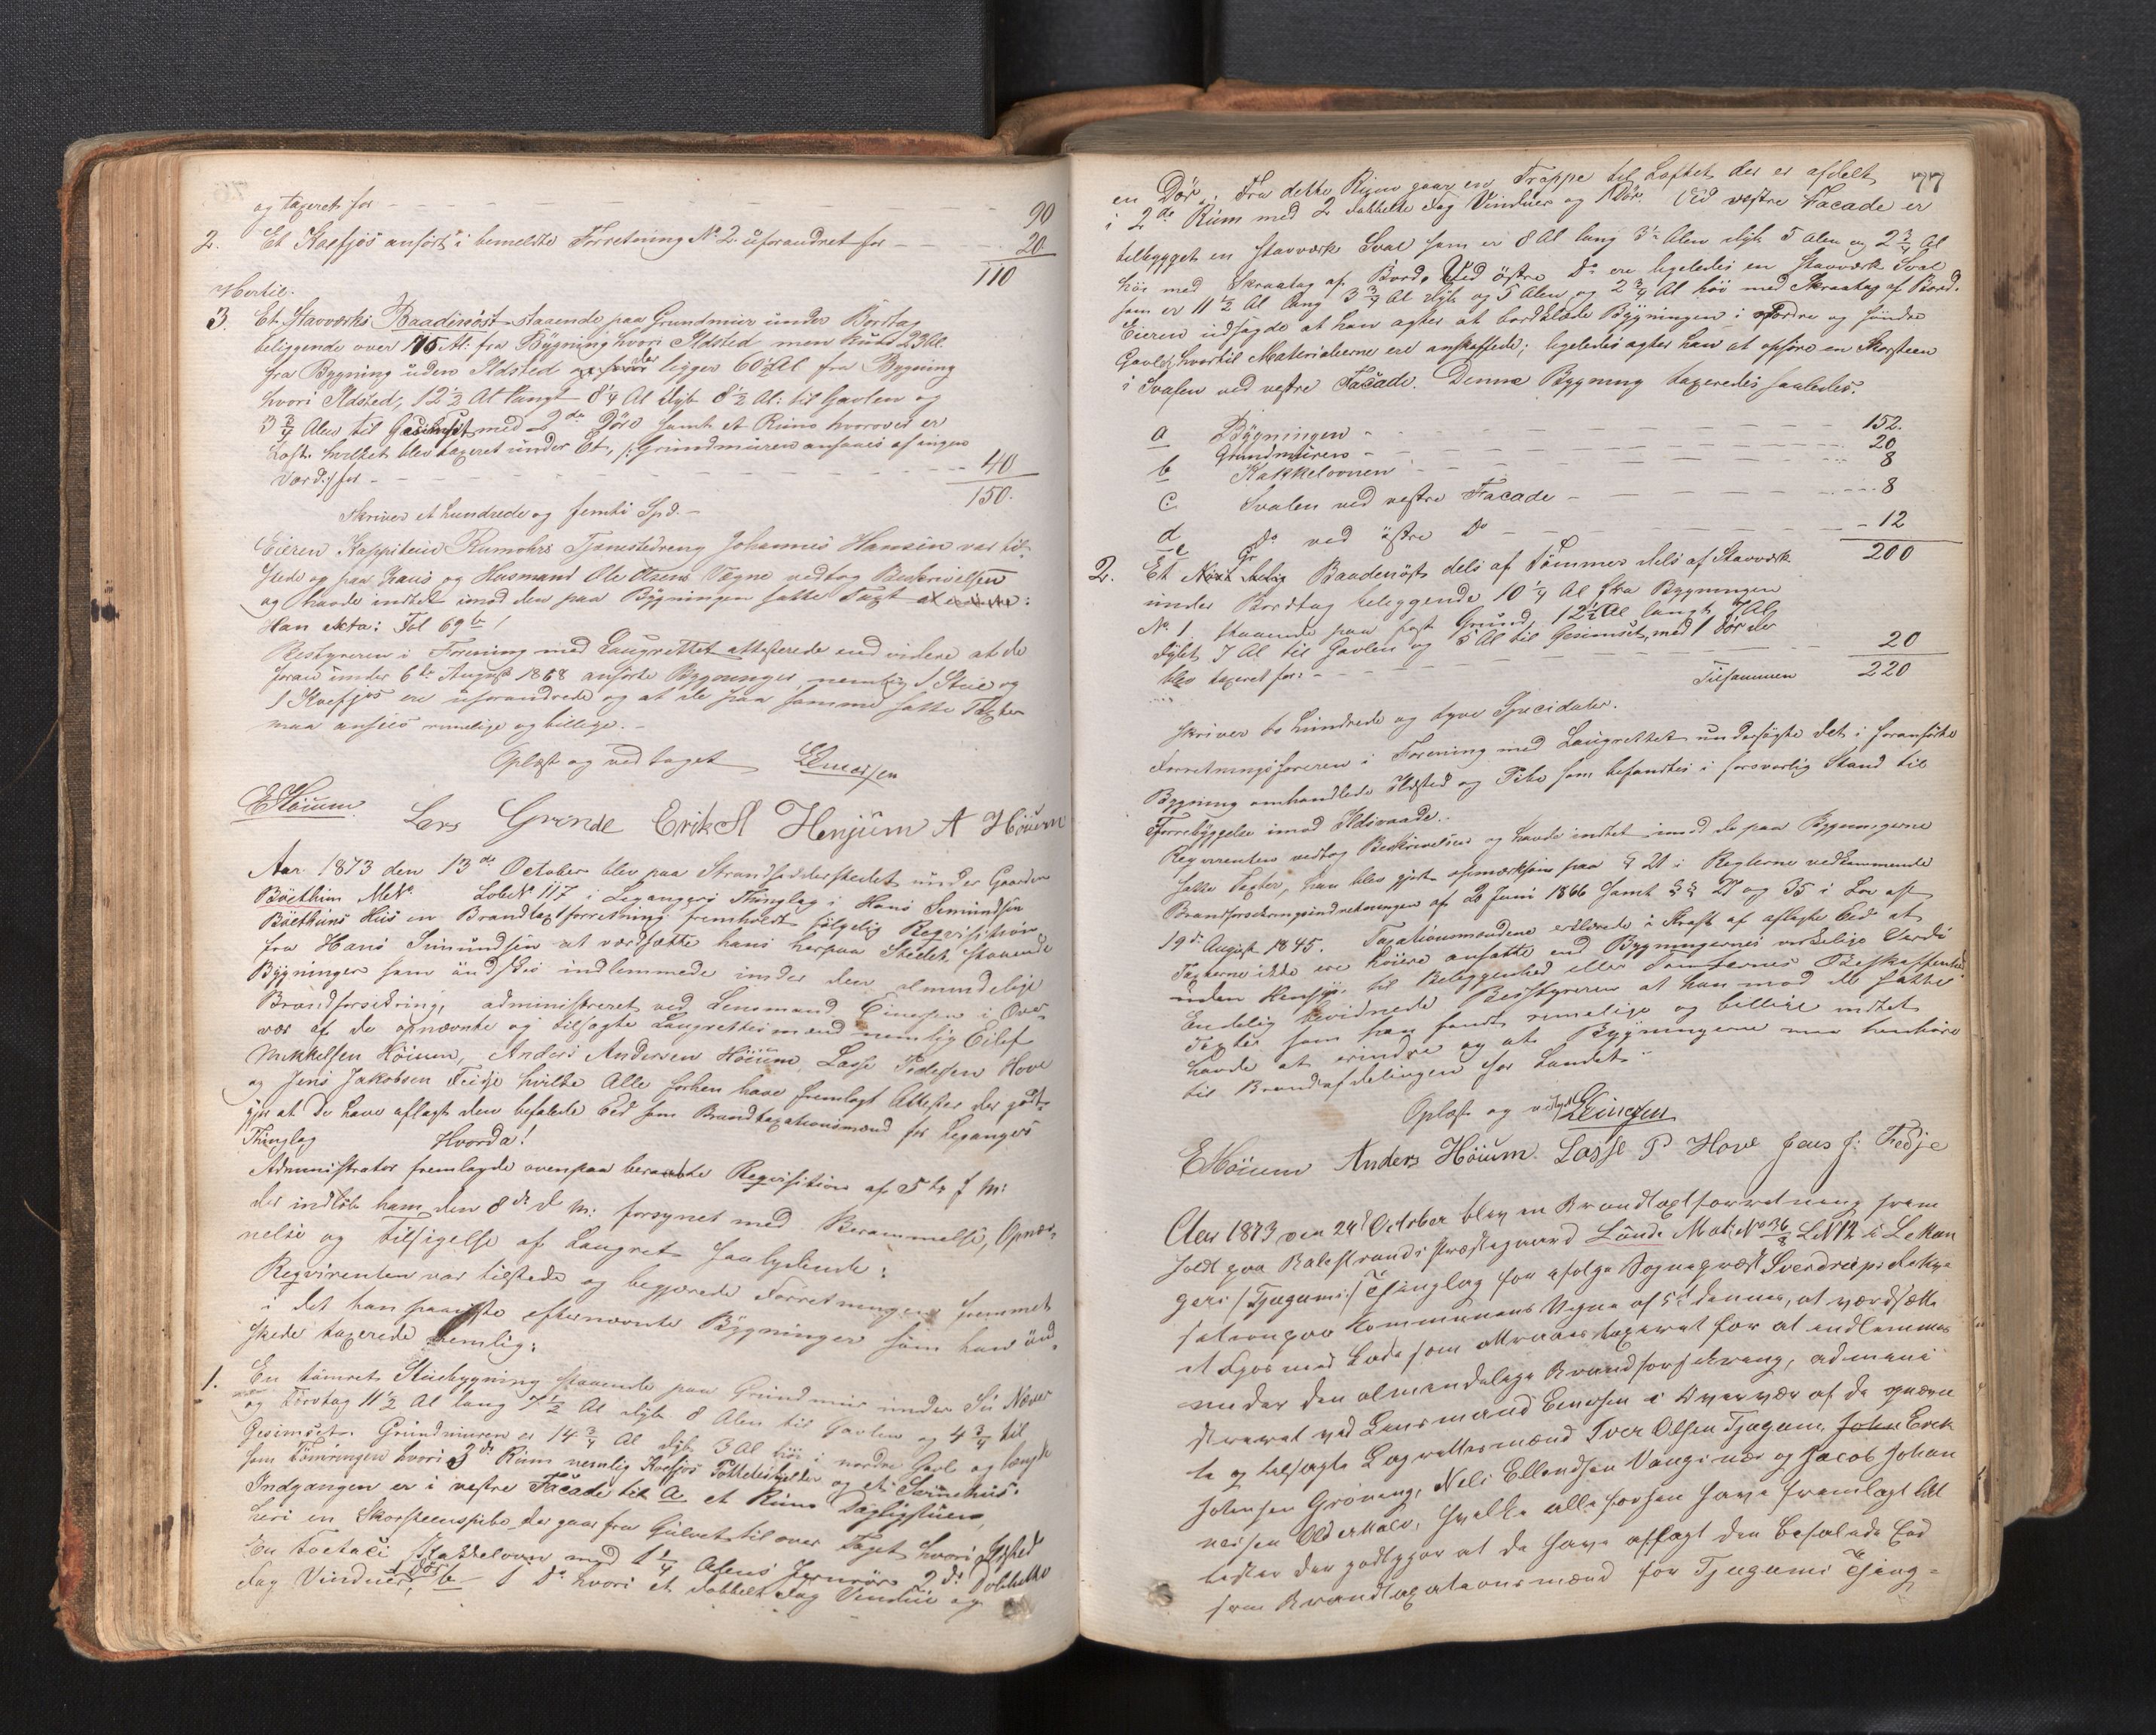 og taxeret for - - - - 90
2. Et Koefjös anfört i bemeldte Forretning No 2 uforandret for - - 20
110
Hertil.
3. Et Stavværks Baadenöst staaende paa Grundmuur under Bordtag
beliggende over 175 Al: fra Bygning hvori Ildsted men kuns 23 Al.
fra Bygning uden Ildsted der ligger 60 Al fra Bygning
hvori Ildsted, 12 1/2 Al langt 8 1/4 Al dyb 8 1/2 Al: til Gavlen og
3 3/4 Alen til Gesimset med 2de Döre samt et Rum hvorover er
Loft hvilket blev taxeret under Et, /: Grundmuren ansaaes af ingen
Værd :/ for - - - - 40
150.
Skriver et hundrede og femti Spd. -
Eieren Kappitein Rumohrs Tjenestedreng Johannes Hansen var til-
stede og paa hans og Husmand Ole Olsens Vegne vedtog Beskrivelsen
og havde indtet imod den paa Bygningen satte Taxt
Han extra: Fol 69 b /
Bestyreren i Forening med Laugrettet attesterede end videre at de
foran under 6te August 1868 anförte Bygninger, nemlig 1 Stue og
1 Koefjös ere uforandrede og at de paa samme satte Taxter
maa ansees rimelige og billige. -
Oplæst og vedtaget LEinersen
EHöium Lars Grinde Erik A Henjum A Höium
Aar 1873 den 13de October blev paa Strandsidderstedet under Gaarden
Böethun M No LöbeNo 117 i Leganger Thinglag i Hans Simundsen
Böethuns Hus en Brandtaxtforretning fremholdt fölgelig Reqvisition
fra Hans Simundsen at værdsætte hans herpaa Stedet staaende
Bygninger som öndskes indlemmede under den almindelige
Brandforsikring, administreret ved Lensmand Einersen i Over-
vær af de opnævnte og tilsagte Laugrettesmænd nemlig Eilef
Mikkelsen Höium, Anders Andersen Höium, Lasse Pedersen Hove
og Jens Jakobsen Feidje hvilke Alle forhen have fremlagt Attester der godt-
gjör at De have aflagt den befalede Eed som Brandtaxationsmænd for Leganger
Thinglag Hvorda!
Administrator fremlagde ovenpaa beraabte Reqvisition af 5te f M:
der indlöb ham den 8de d M: forsynet med Berammelse, Opnæv-
nelse og Tilsigelse af Laugret saalydende:
Reqvirenten var tilstede og begjærede Forretningen fremmet
i det han paaviste efternævnte Bygninger som han önd-
skede taxerede nemlig:
1. En tömret Stuebygning staaende paa Grundmur under Næver
og Törvtag 11 1/2 Al lang 7 1/2 Al dyb 8 Alen til Gavlen og 4 3/4 til
Gesimset. Grundmuren er 14 3/4 Al dyb 3 Al höi i nordre Gavl og længde
som Tömringen hvori 3de Rum nemlig Koefjös Pottetiskjelder og et Svinehus.
Indgangen er i vestre Facade til a et Rum Dagligstuen,
heri en Skorsteenspibe der gaar fra Gulvet til over Taget hvori Ildsted
En toetasi Kakkelovn med 1 1/4 Alens Jernrör 2de Dobbelte
fag Vinduer, 1 Dör b 1 Do hvori et dobbelt fag Vindue og
77
en Dör. Fra dette Rum gaar en Trappe til Loftet der er afdelt
i 2de Rum med 2 dobbelte fag Vinduer og 1 Dör. Ved vestre Facade er
tilbygget en Stavværk Sval som er 8 Al lang 3 1/2 Alen dyb 5 Alen og 2 3/4 Al
höi med Skraatag af Bord. Ved östre Do er ligeledes en Stavværk Sval
som er 11 1/2 Al lang 3 3/4 Al dyb og 5 Alen og 2 3/4 Al höi med Skraatag af Bord.
Eieren udsagde at han agter at bordklæde Bygningen i nordre og söndre
Gavl hvortil Materialierne ere anskaffede; ligeledes agter han at opföre en Skorsteen
i Svalen ved vestre Facade. Denne Bygning taxeredes saaledes.
a Bygningen - - - 152.
Grundmuren - - - 20
b Kakkelovnen - - - 8
c Svalen ved vestre Facade - - - 8
d Do ved östre Do - - - 12
200
2. Et Baadenöst dels af Tömmer dels af Stavværk
under Bordtag beliggende 10 1/4 Al fra Bygningen
No 1 staaende paa fast Grund, 12 1/2 Al langt, 7 Al
dybt 7 Al til Gavlen og 5 Al til Gesimset, med 1 Dör der
blev taxeret for: - - - 20
Tilsammen 220
Skriver to hundrede og tyve Speciedaler.
Forretningsföreren i Forening med Laugrettet undersögte det i foranförte
Bygning omhandlede Ildsted og Pibe som befandtes i forsvarlig Stand til
Forebyggelse imod Ildsvaade.
Reqvirenten vedtog Beskrivelsen og havde indtet imod de paa Bygningerne
satte Taxter, han blev gjort opmærksom paa § 21 i Reglerne vedkommende
Brandforsikringsindretningen af 20 Juni 1866 samt §§ 27 og 35 i Lov af
19de August 1845. Taxationsmændene erklærede i Kraft af aflagte Eed at
Taxterne ikke ere höiere ansatte end Bygningernes virkelige Værdi
uden Hensyn til Beliggenhed eller Tomternes Beskaffenhed.
Endelig bevidnede Bestyreren at han mod de satte
Taxter som han fandt rimelige og billige indtet
havde at erindre og at Bygningerne maa henhöre
til Brandafdelingen for Landet. -
Oplæst og vedtaget LEinersen
EHöium Anders Höium Lasse P Hove Jens J: Fedje
Aar 1873 den 24d October blev en Brandtaxtforretning frem
holdt paa Balestrands Præstegaard Lunde Matr No 36/8 LNo 12 i Lekan
ger /: Tjugums :/ Thinglag for efölge Sognepræst Sverdrups Rekvi
sition paa Kommunens Vegne af 5d dennes, at værdsætte
et Fjös med Lade som attraaes taxeret for at indlemmes
under den almindelige Brandforsikring, admini
streret ved Lensmand Einersen i Overvær af de opnævn
te og tilsagte Lagrettesmænd Iver Olsen Tjugum, John Erik
Johnsen Gröneng, Nels Ellendsen Vangsnæs og Jacob Johan
nessen Oldermalm, hvilke alle forhen have fremlagt At
tester der godtgjör at de have aflagt den befalede Eed
som Brandtaxationsmænd for Tjugums Thing-